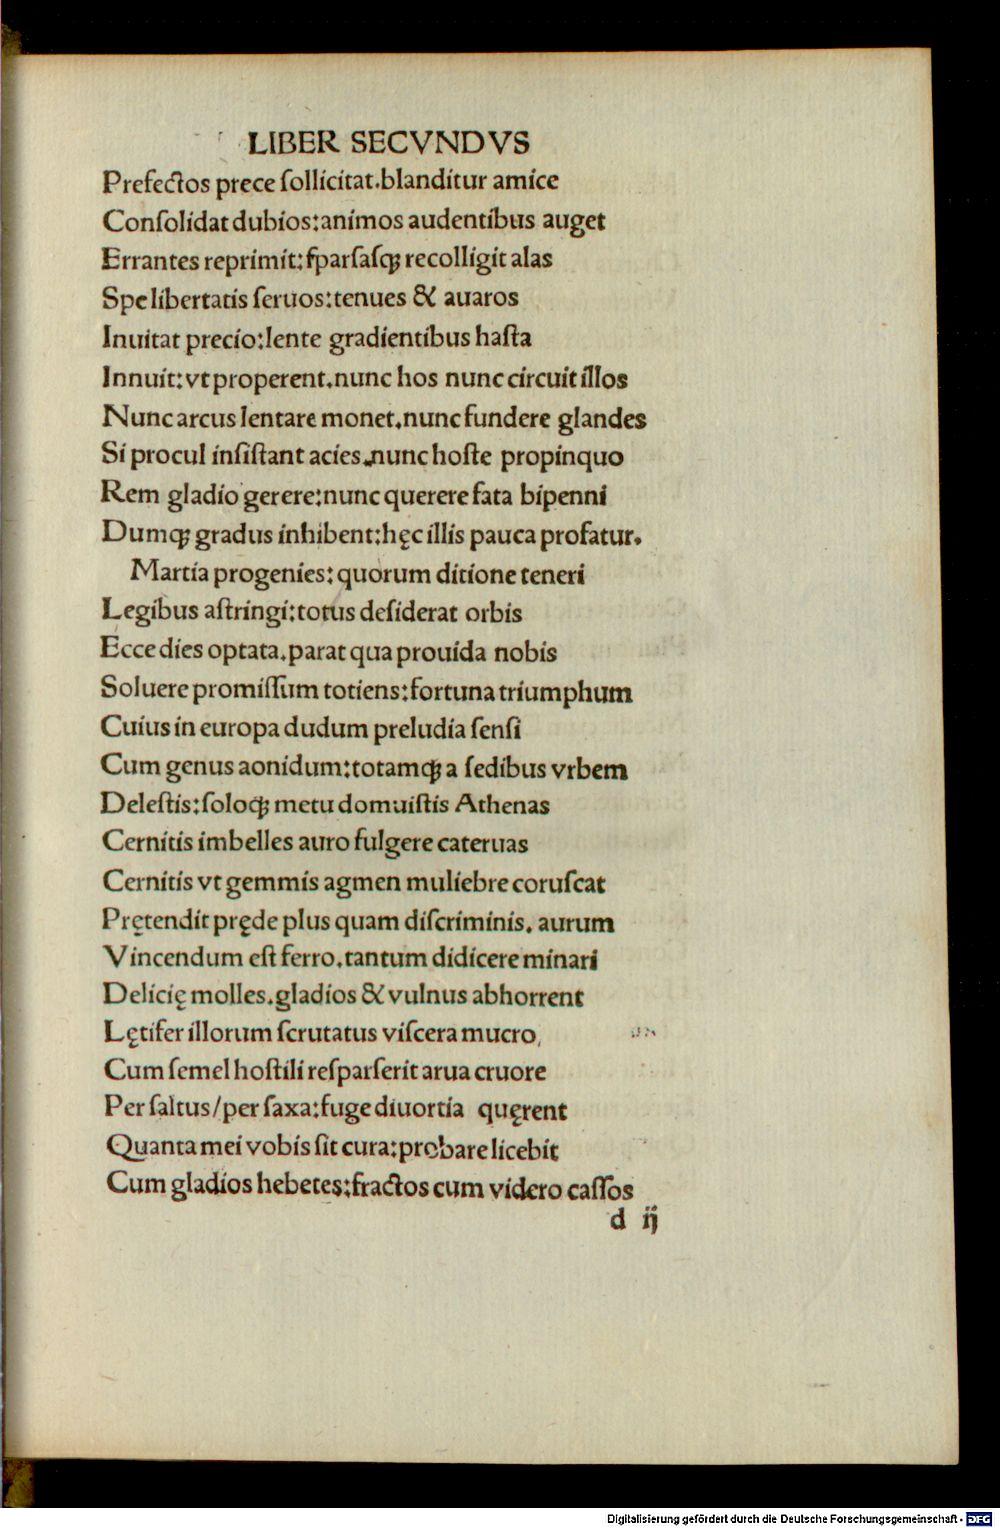 LIBER SECVNDVS
Prefectos prece ſollicitat.blanditur amice
Conſolidat dubios:animos audentibus auget
Errantes reprimit:ſparſaſqꝫ recolligit alas
Spe libertatis ſeruos:tenues & auaros
Inuitat precio:lente gradientibus haſta
Innuit:vt properent.nunc hos nunc circuit illos
Nunc arcus lentare monet.nunc fundere glandes
Si procul inſiſtant acies.nunc hoſte propinquo
Rem gladio gerere:nunc querere fata bipenni
Dumqꝫ gradus inhibent:hęc illis pauca profatur.
Martia progenies:quorum ditione teneri
Legibus aſtringi:totus deſiderat orbis
Ecce dies optata.parat qua prouida nobis
Soluere promiſſum totiens:fortuna triumphum
Cuius in europa dudum preludia ſenſi
Cum genus aonidum:totamqꝫ a ſedibus vrbem
Deleſtis:ſoloqꝫ metu domuiſtis Athenas
Cernitis imbelles auro fulgere cateruas
Cernitis vt gemmis agmen muliebre coruſcat
Prętendit pręde plus quam diſcriminis. aurum
Vincendum eſt ferro.tantum didicere minari
Delicię molles.gladios & vulnus abhorrent
Lętifer illorum ſcrutatus viſcera mucro
Cum ſemel hoſtili reſparſerit arua cruore
Per ſaltus/per ſaxa:fuge diuortia quęrent
Quanta mei vobis ſit cura:probare licebit
Cum gladios hebetes:fractos cum videro caſſos
d ij
Digitalisierung gefördert durch die Deutsche Forschungsgemeinschaft - DFG